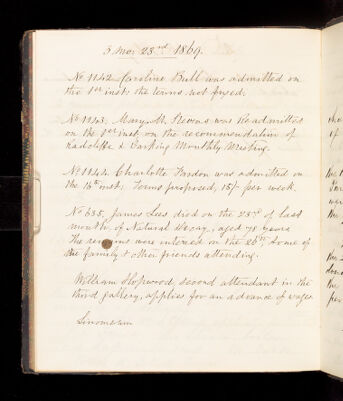 5 mo: 23rd 1869.
No 1142. Caroline Bull was admitted on
the 1st inst: the terms not fixed.
No 1143. Mary M. Stevens was admitted
on the 1st inst, on the recommendation of
Ratcliffe & Barking Monthly Meeting.
No 1144. Charlotte Fardon was admitted on
the 15th inst. Terms proposed, 15/- per week.
No 635. James Lees died on the 23rd of last
month, of Natural Decay, aged 78 years
The remains were interred on the 28th some of
the family & other friends attending.
William Hopwood, second attendant in the
third gallery, applies for an advance of wages